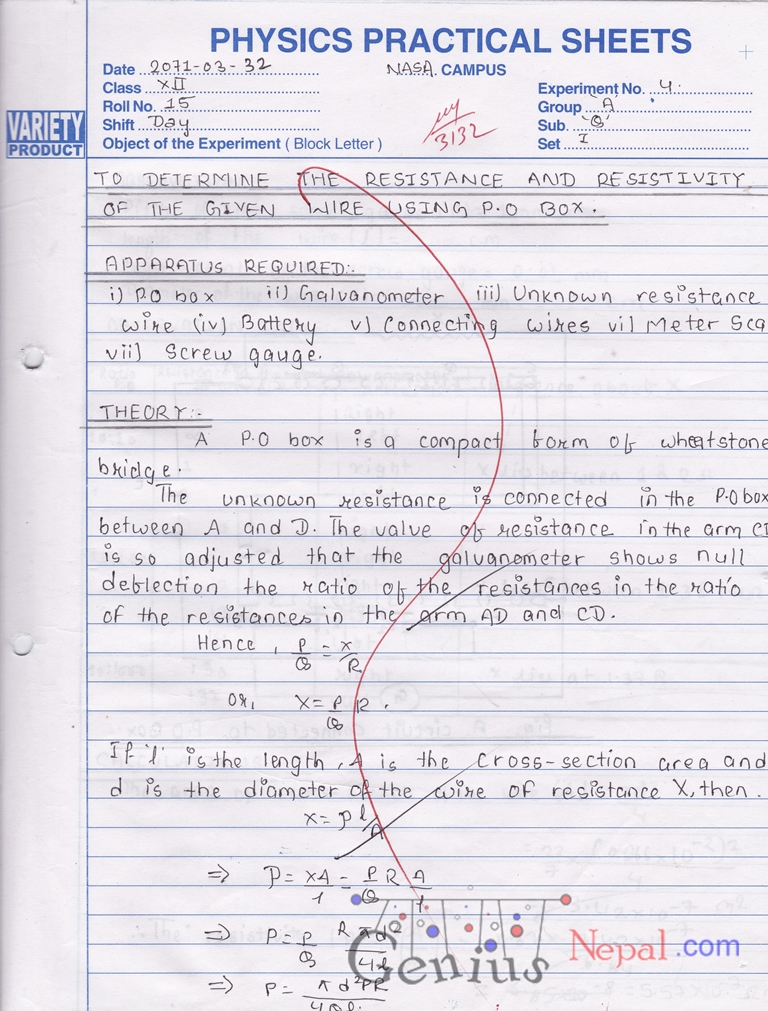 PHYSICS PRACTICAL SHEETS
Date 2071-03-32
NASA CAMPUS
Class XII
Experiment No. 4.
Roll No. 15
Group A
Shift Day
Sub. Q
VARIETY
PRODUCT
Set I
Object of the Experiment ( Block Letter )
3132
TO DETERMINE THE RESISTANCE AND RESISTIVITY
OF THE GIVEN WIRE USING P.O BOX.
APPARATUS REQUIRED:-
i) P.O box ii) Galvanometer iii) Unknown resistance
wire (iv) Battery v) Connecting wires vi) Meter Sca
vii) Screw gauge.
THEORY:-
A P.O box is a compact form of wheatstone
bridge.
The unknown resistance is connected in the P.O box
between A and D. The value of resistance in the arm CD
is so adjusted that the galvanometer shows null
deflection the ratio of the resistances in the ratio
of the resistances in the arm AD and CD.
Hence, P/Q = X/R
or, X = P/Q R.
If 'l' is the length, A is the cross-section area and
d is the diameter of the wire of resistance X, then.
X = ρ l/A
⇒ ρ = XA/l = P/Q R A/l
⇒ ρ = P/Q R πd²/4l
⇒ ρ = πd²PR/4Ql
Genius Nepal.com